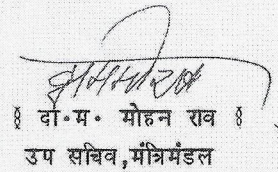 § दो.म. मोहन राव §
उप सचिव,मंत्रिमंडल